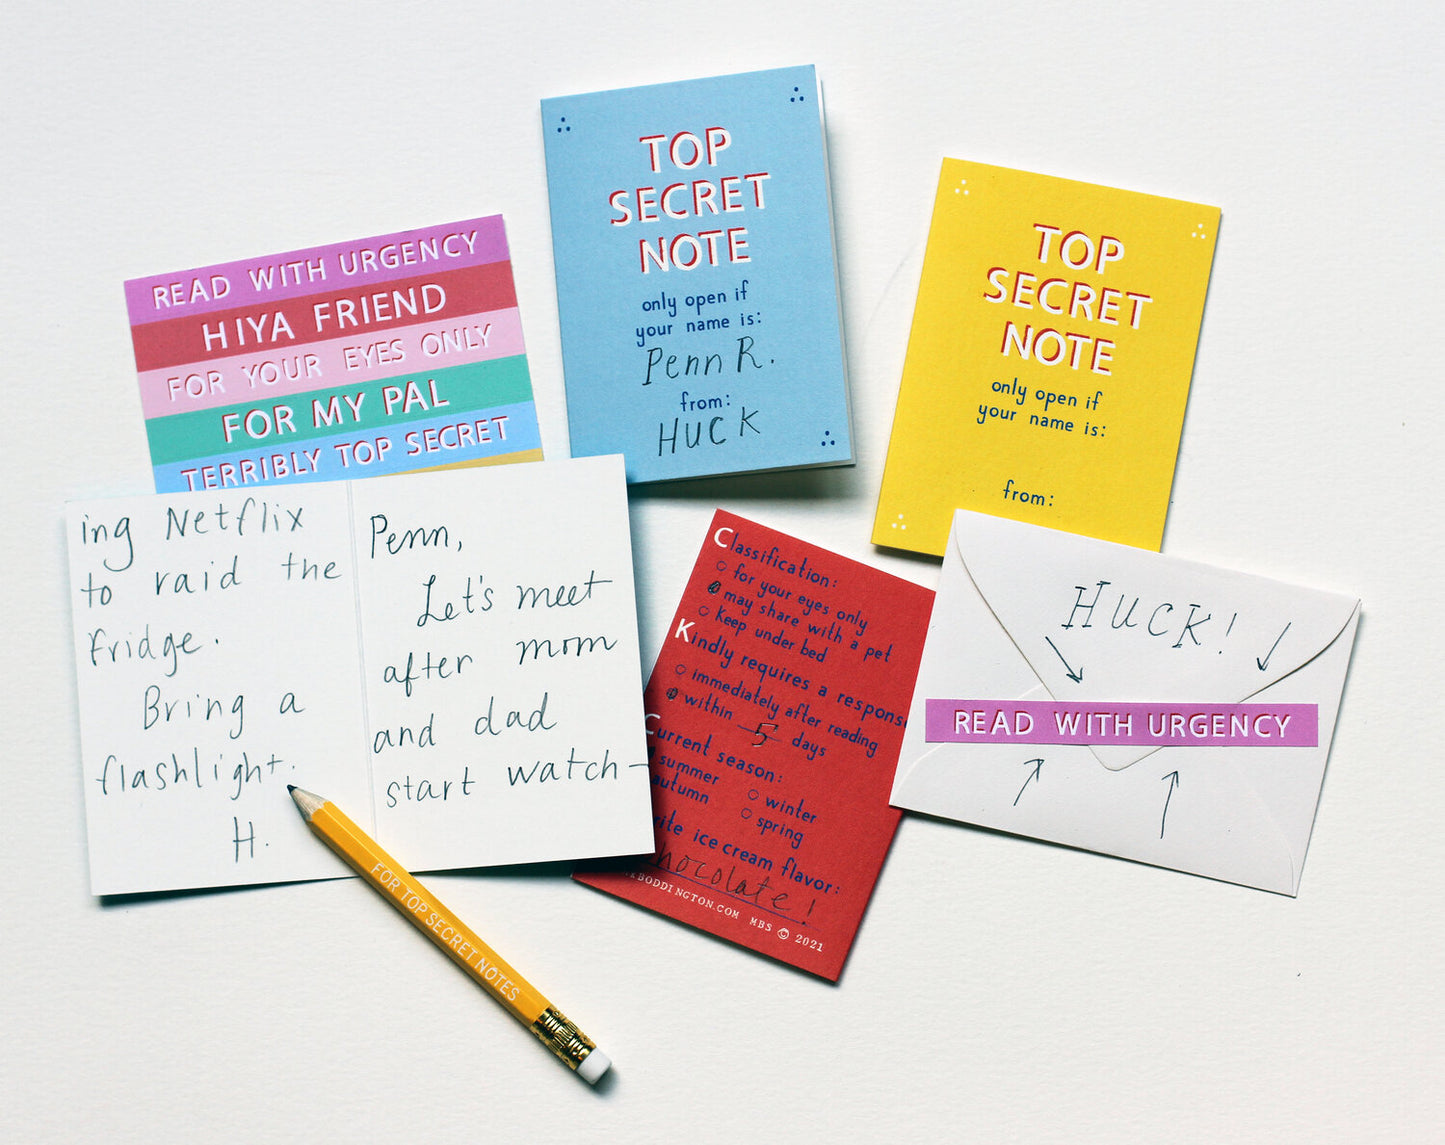 READ WITH URGENCY
HIYA FRIEND
FOR YOUR EYES ONLY
FOR MY PAL
TERRIBLY TOP SECRET
TOP
SECRET
NOTE
only open if
your name is:
Penn R.
from:
HUCK
TOP
SECRET
NOTE
only open if
your name is:
from:
ing Netflix
to raid the
fridge.
Bring a
flashlight.
H.
Penn,
Let's meet
after mom
and dad
start watch-
FOR TOP SECRET NOTES
Classification:
for your eyes only
may share with a pet
Keep under bed
Kindly requires a respons
immediately after reading
within 5 days
Current season:
summer
winter
autumn
spring
ite ice cream flavor:
hocolate!
BODDINGTON.COM MBS 2021
HUCK!
READ WITH URGENCY